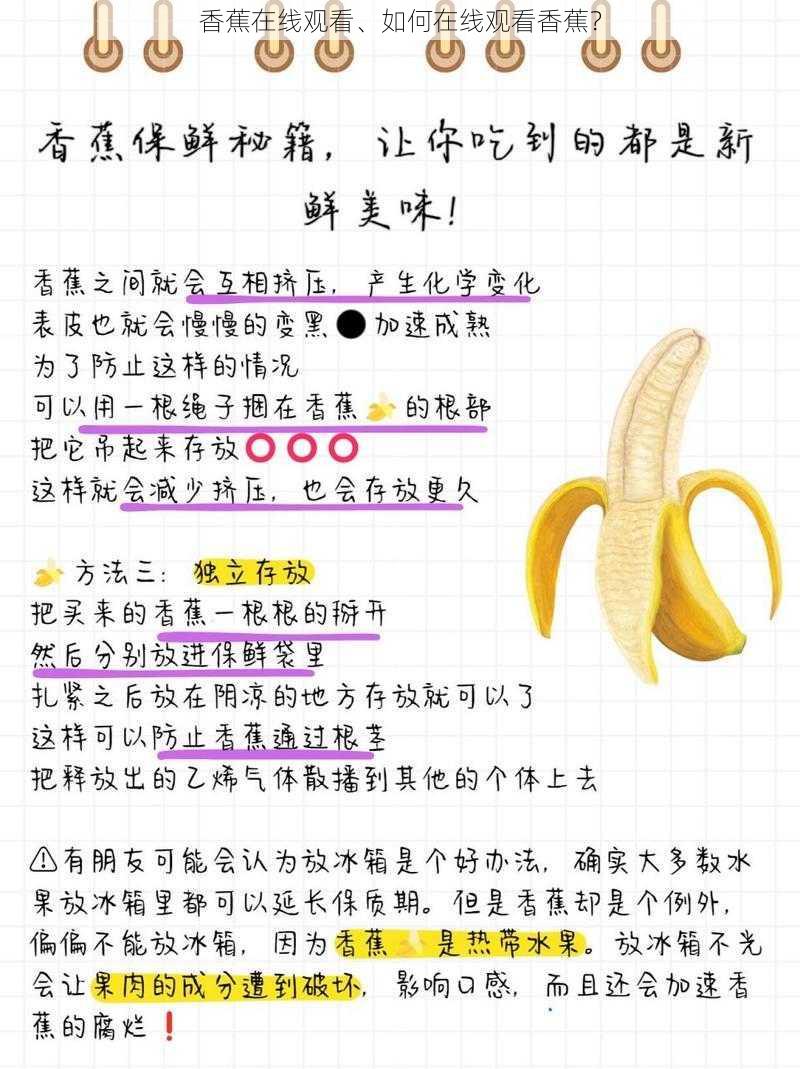 香蕉在线观看、如何在线观看香蕉？
香蕉保鲜秘籍，让你吃到的都是新
鲜美味！
香蕉之间就会互相挤压，产生化学变化
表皮也就会慢慢的变黑⚫加速成熟
为了防止这样的情况
可以用一根绳子捆在香蕉🍌的根部
把它吊起来存放⭕⭕⭕
这样就会减少挤压，也会存放更久
🍌方法三：独立存放
把买来的香蕉一根根的掰开
然后分别放进保鲜袋里
扎紧之后放在阴凉的地方存放就可以了
这样可以防止香蕉通过根茎
把释放出的乙烯气体散播到其他的个体上去
⚠有朋友可能会认为放冰箱是个好办法，确实大多数水
果放冰箱里都可以延长保质期。但是香蕉却是个例外，
偏偏不能放冰箱，因为香蕉🍌是热带水果。放冰箱不光
会让果肉的成分遭到破坏，影响口感，而且还会加速香
蕉的腐烂❗